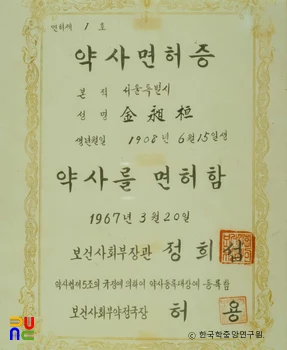 면허제 1 호
약사면허증
본 적 서울특별시
성 명 金昶桓
생년월일 1908년 6월 15일생
약사를 면허함
1967년 3월 20일
보건사회부장관 정희섭
약사법제5조의 규정에 의하여 약사등록대장에 등록함
보건사회부약정국장 허 용
© 한국학중앙연구원